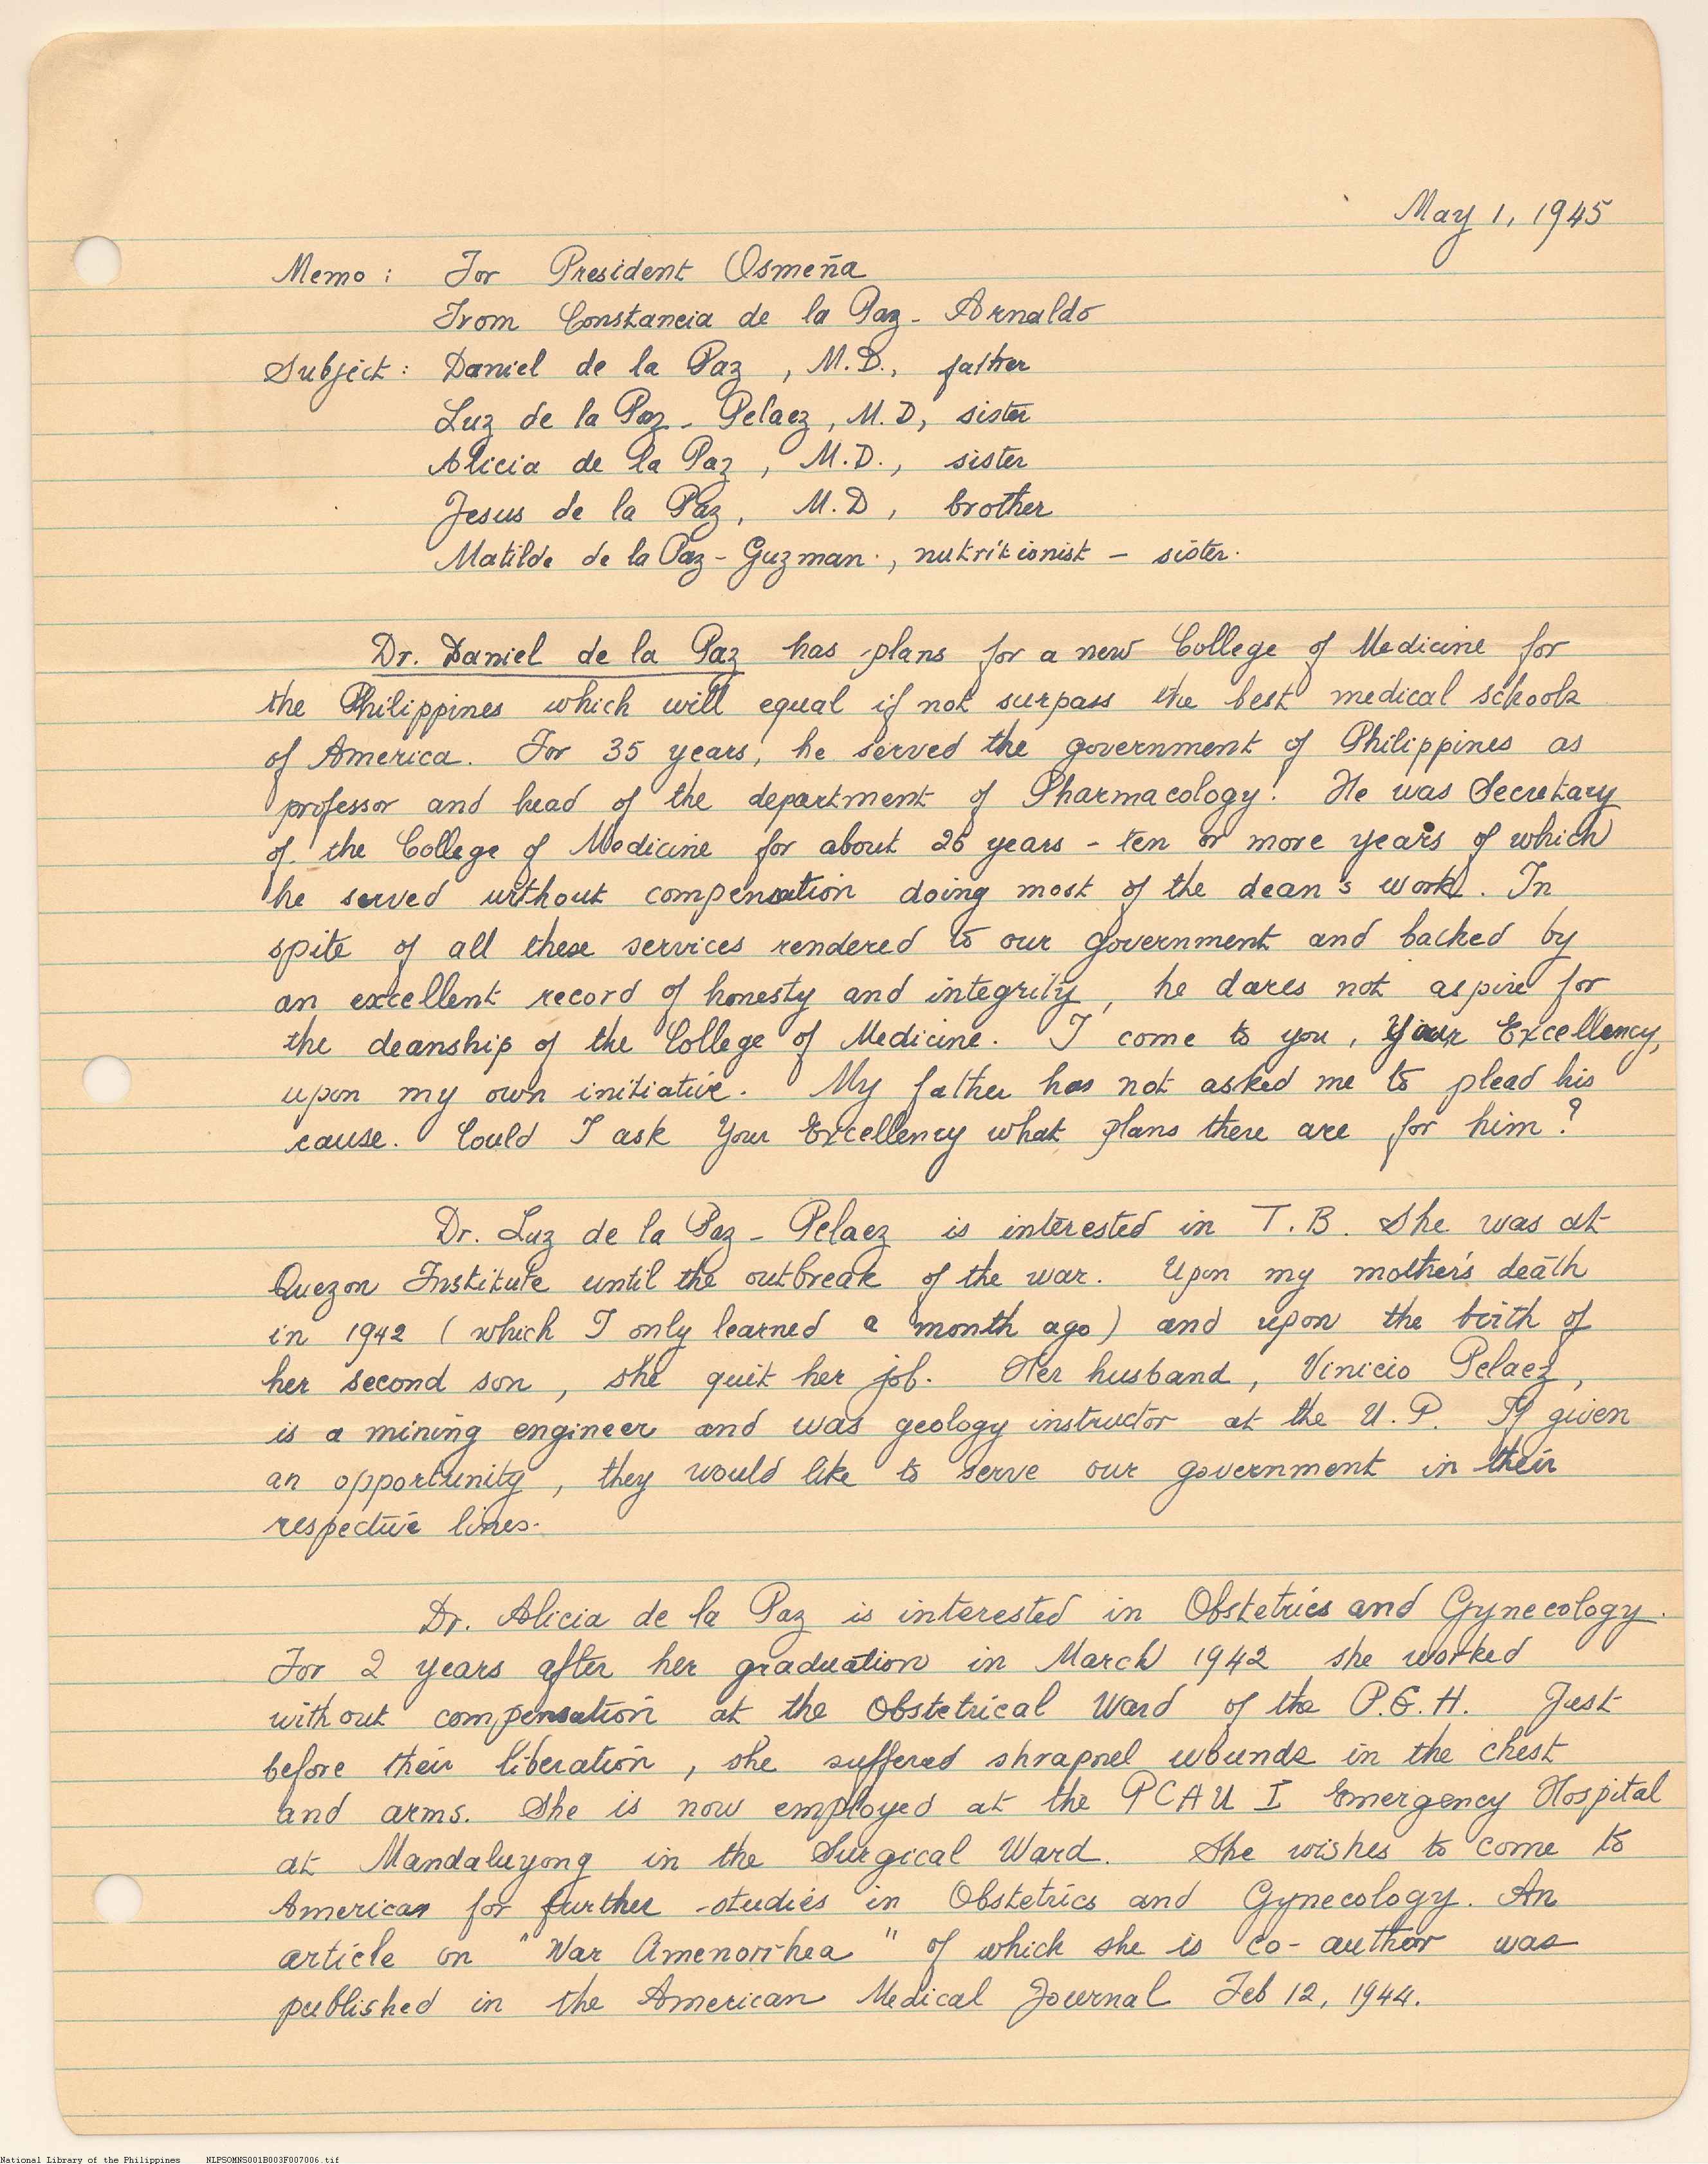 May 1, 1945
Memo : For President Osmeña
From Constancia de la Paz - Arnaldo
Subject : Daniel de la Paz , M.D., father
Luz de la Paz - Pelaez , M.D, sister
Alicia de la Paz , M.D., sister
Jesus de la Paz, M.D , brother
Matilde de la Paz - Guzman , nutritionist - sister.
Dr. Daniel de la Paz has plans for a new College of Medicine for
the Philippines which will equal if not surpass the best medical schools
of America. For 35 years, he served the government of Philippines as
professor and head of the department of Pharmacology. He was Secretary
of the College of Medicine for about 26 years - ten or more years of which
he served without compensation doing most of the dean's work. In
spite of all these services rendered to our government and backed by
an excellent record of honesty and integrity, he dares not aspire for
the deanship of the College of Medicine. I come to you, Your Excellency,
upon my own initiative. My father has not asked me to plead his
cause. Could I ask Your Excellency what plans there are for him?
Dr. Luz de la Paz - Pelaez is interested in T.B. She was at
Quezon Institute until the outbreak of the war. Upon my mother's death
in 1942 ( which I only learned a month ago ) and upon the birth of
her second son , she quit her job. Her husband , Vinicio Pelaez ,
is a mining engineer and was geology instructor at the U.P. If given
an opportunity , they would like to serve our government in their
respective lines.
Dr. Alicia de la Paz is interested in Obstetrics and Gynecology.
For 2 years after her graduation in March 1942 she worked
without compensation at the Obstetrical Ward of the P.G.H. Just
before their liberation , she suffered shrapnel wounds in the chest
and arms. She is now employed at the PCAU I Emergency Hospital
at Mandaluyong in the Surgical Ward. She wishes to come to
American for further studies in Obstetrics and Gynecology. An
article on "War Amenorrhea" of which she is co-author was
published in the American Medical Journal Feb 12, 1944.
National Library of the Philippines NLPSOMNS001B003F007006.tif